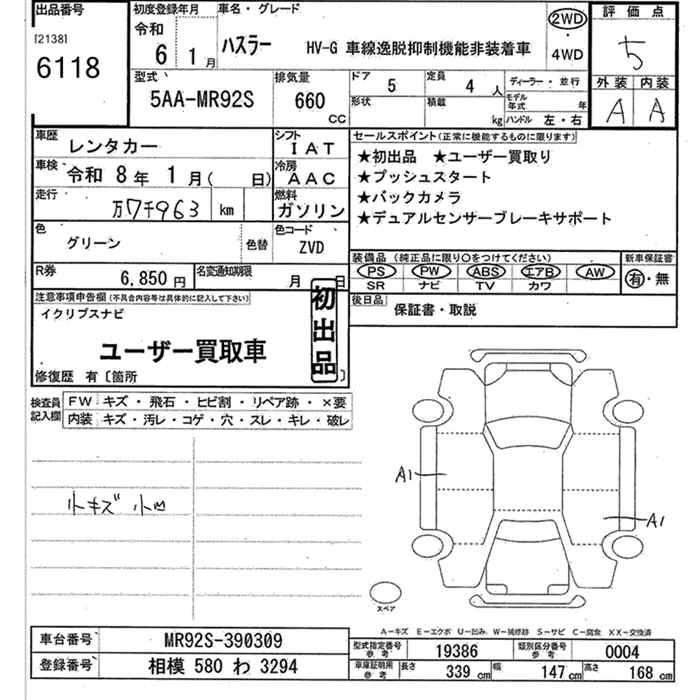 出品番号 初度登録年月 車名・グレード 評価点
[2138] 令和
6118 6 1月 ハスラー HV-G 車線逸脱抑制機能非装着車 2WD ・ 4WD 5
型式 排気量 ドア 5 定員 4 人 ディーラー・並行 外装 内装
5AA-MR92S 660 CC 形状 積載 kg モデル年式 年 ハンドル 左・右 A A
車歴 レンタカー シフト IAT セールスポイント(正常に機能するものに限ります)
車検 令和 8年 1月( 日) 冷房 AAC ★初出品 ★ユーザー買取り
走行 万7千963 km 燃料 ガソリン ★プッシュスタート
★バックカメラ
色 グリーン 色替 色コード ZVD ★デュアルセンサーブレーキサポート
R券 6,850円 名変通知期限 月 日 装備品(純正品に限り〇をつけてください) 新車保証書
PS PW ABS エアB AW 有・無
SR ナビ TV カワ
注意事項申告欄(不具合内容等は具体的に記入して下さい) 初出品 後日品 保証書・取説
イクリプスナビ
ユーザー買取車
修復歴 有〔箇所 〕
検査員記入欄 FW キズ・飛石・ヒビ割・リペア跡・×要
内装 キズ・汚レ・コゲ・穴・スレ・キレ・破レ
A1
小キズ 小凹
A1
スペア
A-キズ E-エクボ U-凹み W-補修跡 S-サビ C-腐食 XX-交換済
車台番号 MR92S-390309 型式指定番号 参考 19386 類別区分番号 参考 0004
登録番号 相模 580 わ 3294 車庫証明用 参考 長さ 339 cm 幅 147 cm 高さ 168 cm